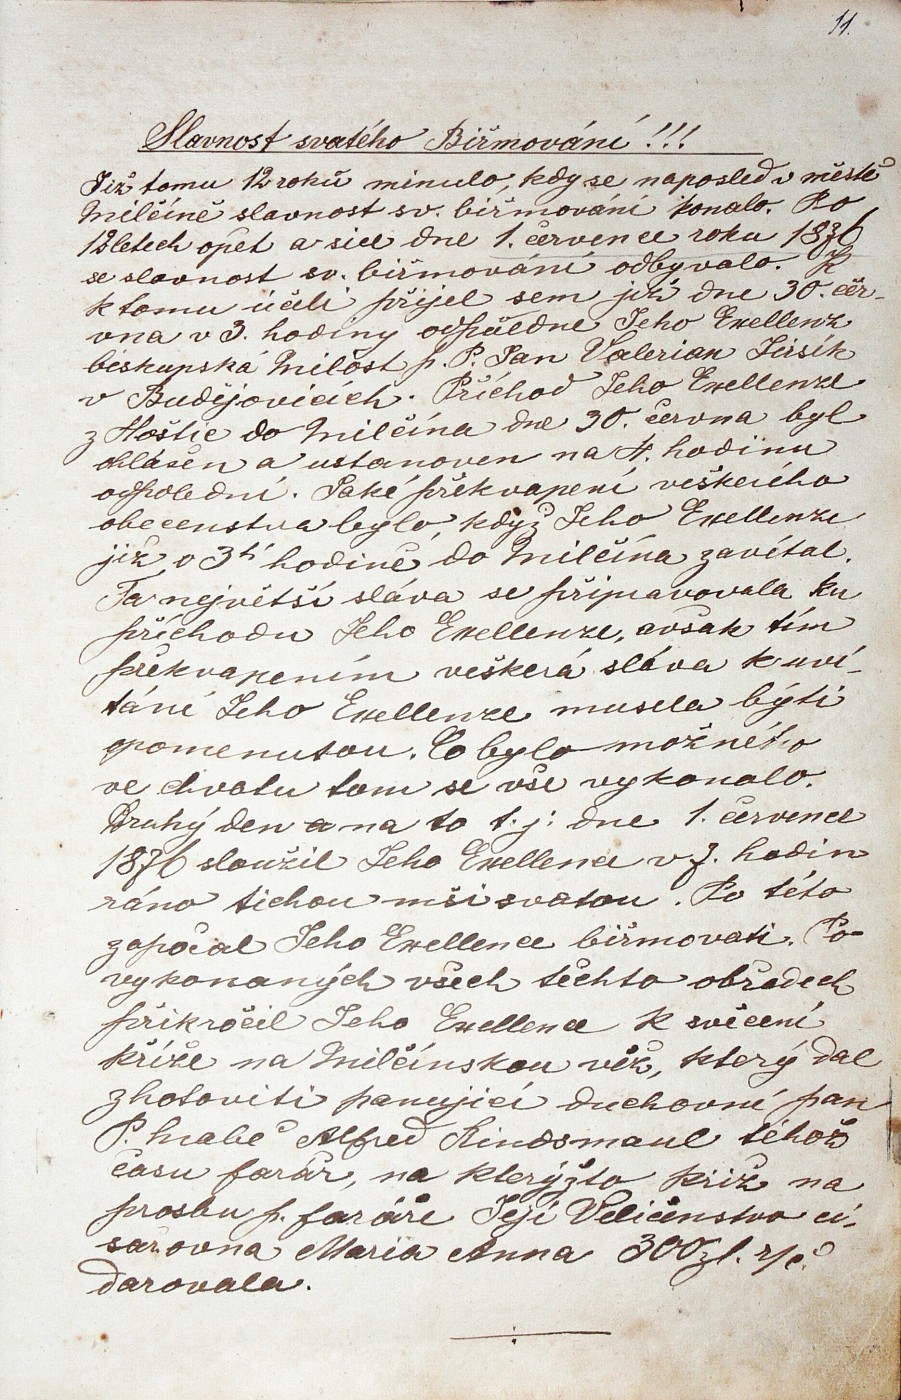 11.
Slavnost svatého Biřmování!!!
Již tomu 12 roků minulo, kdy se naposled v městě
Milčíně slavnost sv. biřmování konalo. Po
12 letech opět a sice dne 1. července roku 1876
se slavnost sv. biřmování odbývalo. K
k tomu účeli přijel sem již dne 30. čer-
vna v 3. hodiny odpoledne Jeho Exellenz
biskupská Milost p. P. Jan Valerian Jirsík
v Budějovicích. Příchod Jeho Exellenze
z Hoštic do Milčína dne 30. června byl
ohlášen a ustanoven na 4. hodinu
odpolední. Jaké překvapení veškerého
obecenstva bylo, když Jeho Exellenze
již o 3tí hodině do Milčína zavítal.
Ta největší sláva se připravovala ku
příchodu Jeho Exellenze, avšak tím
překvapením veškerá sláva k uví-
tání Jeho Exellenze musela býti
opomenutou. Co bylo možného
ve chvatu tom se vše vykonalo.
Druhý den a na to t. j. dne 1. července
1876 sloužil Jeho Exellence v 7. hodin
ráno tichou mši svatou. Po této
započal Jeho Exellence biřmovati. Po-
vykonaných všech těchto obřadech
přikročil Jeho Exellence k svěcení
kříže na Milčínskou věž, který dal
zhotoviti panující duchovní pan
P. hrabě Alfred Kindsmaul téhož
času farář, na kterýžto kříž na
prosbu p. faráře Její Veličenstvo cí-
sařovna Maria Anna 300 zl. r/č.
darovala.